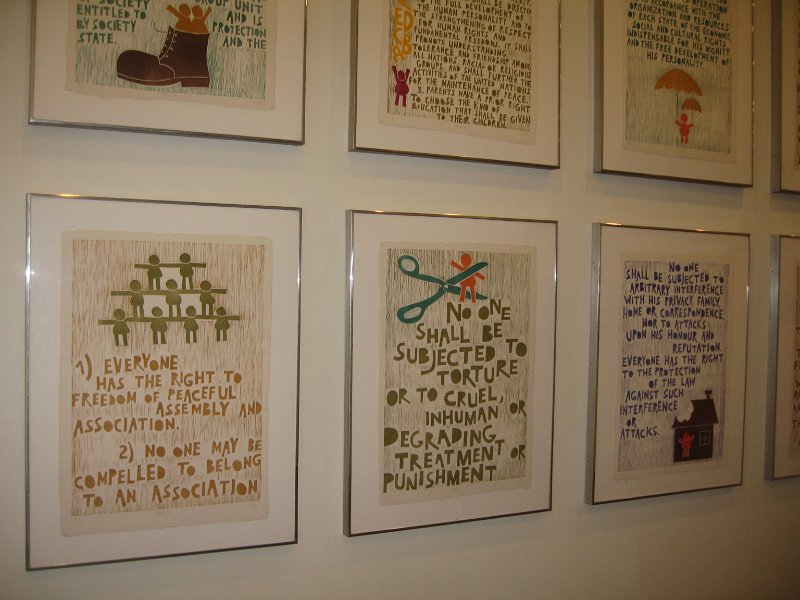 SOCIETY
ENTITLED TO
BY SOCIETY
STATE.
GROUP UNIT
AND IS
PROTECTION
AND THE
THE HUMAN PERSONALITY AND TO
THE STRENGTHENING OF RESPECT
FOR HUMAN RIGHTS AND
FUNDAMENTAL FREEDOMS. IT SHALL
PROMOTE UNDERSTANDING,
TOLERANCE AND FRIENDSHIP AMONG
ALL NATIONS, RACIAL OR RELIGIOUS
GROUPS, AND SHALL FURTHER THE
ACTIVITIES OF THE UNITED NATIONS
FOR THE MAINTENANCE OF PEACE.
3. PARENTS HAVE A PRIOR RIGHT
TO CHOOSE THE KIND OF
EDUCATION THAT SHALL BE GIVEN
TO THEIR CHILDREN.
ORGANIZATION AND RESOURCES
OF EACH STATE, OF THE ECONOMIC,
SOCIAL AND CULTURAL RIGHTS
INDISPENSABLE FOR HIS DIGNITY
AND THE FREE DEVELOPMENT OF
HIS PERSONALITY
1) EVERYONE
HAS THE RIGHT TO
FREEDOM OF PEACEFUL
ASSEMBLY AND
ASSOCIATION.
2) NO ONE MAY BE
COMPELLED TO BELONG
TO AN ASSOCIATION
NO ONE
SHALL BE
SUBJECTED TO
TORTURE
OR TO CRUEL,
INHUMAN OR
DEGRADING
TREATMENT OR
PUNISHMENT
NO ONE
SHALL BE SUBJECTED TO
ARBITRARY INTERFERENCE
WITH HIS PRIVACY, FAMILY,
HOME OR CORRESPONDENCE,
NOR TO ATTACKS
UPON HIS HONOUR AND
REPUTATION.
EVERYONE HAS THE RIGHT
TO THE PROTECTION
OF THE LAW
AGAINST SUCH
INTERFERENCE
OR
ATTACKS.